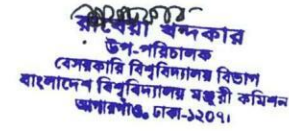 রাবেয়া খন্দকার
উপ-পরিচালক
বেসরকারি বিশ্ববিদ্যালয় বিভাগ
বাংলাদেশ বিশ্ববিদ্যালয় মঞ্জুরী কমিশন
আগারগাঁও, ঢাকা-১২০৭।